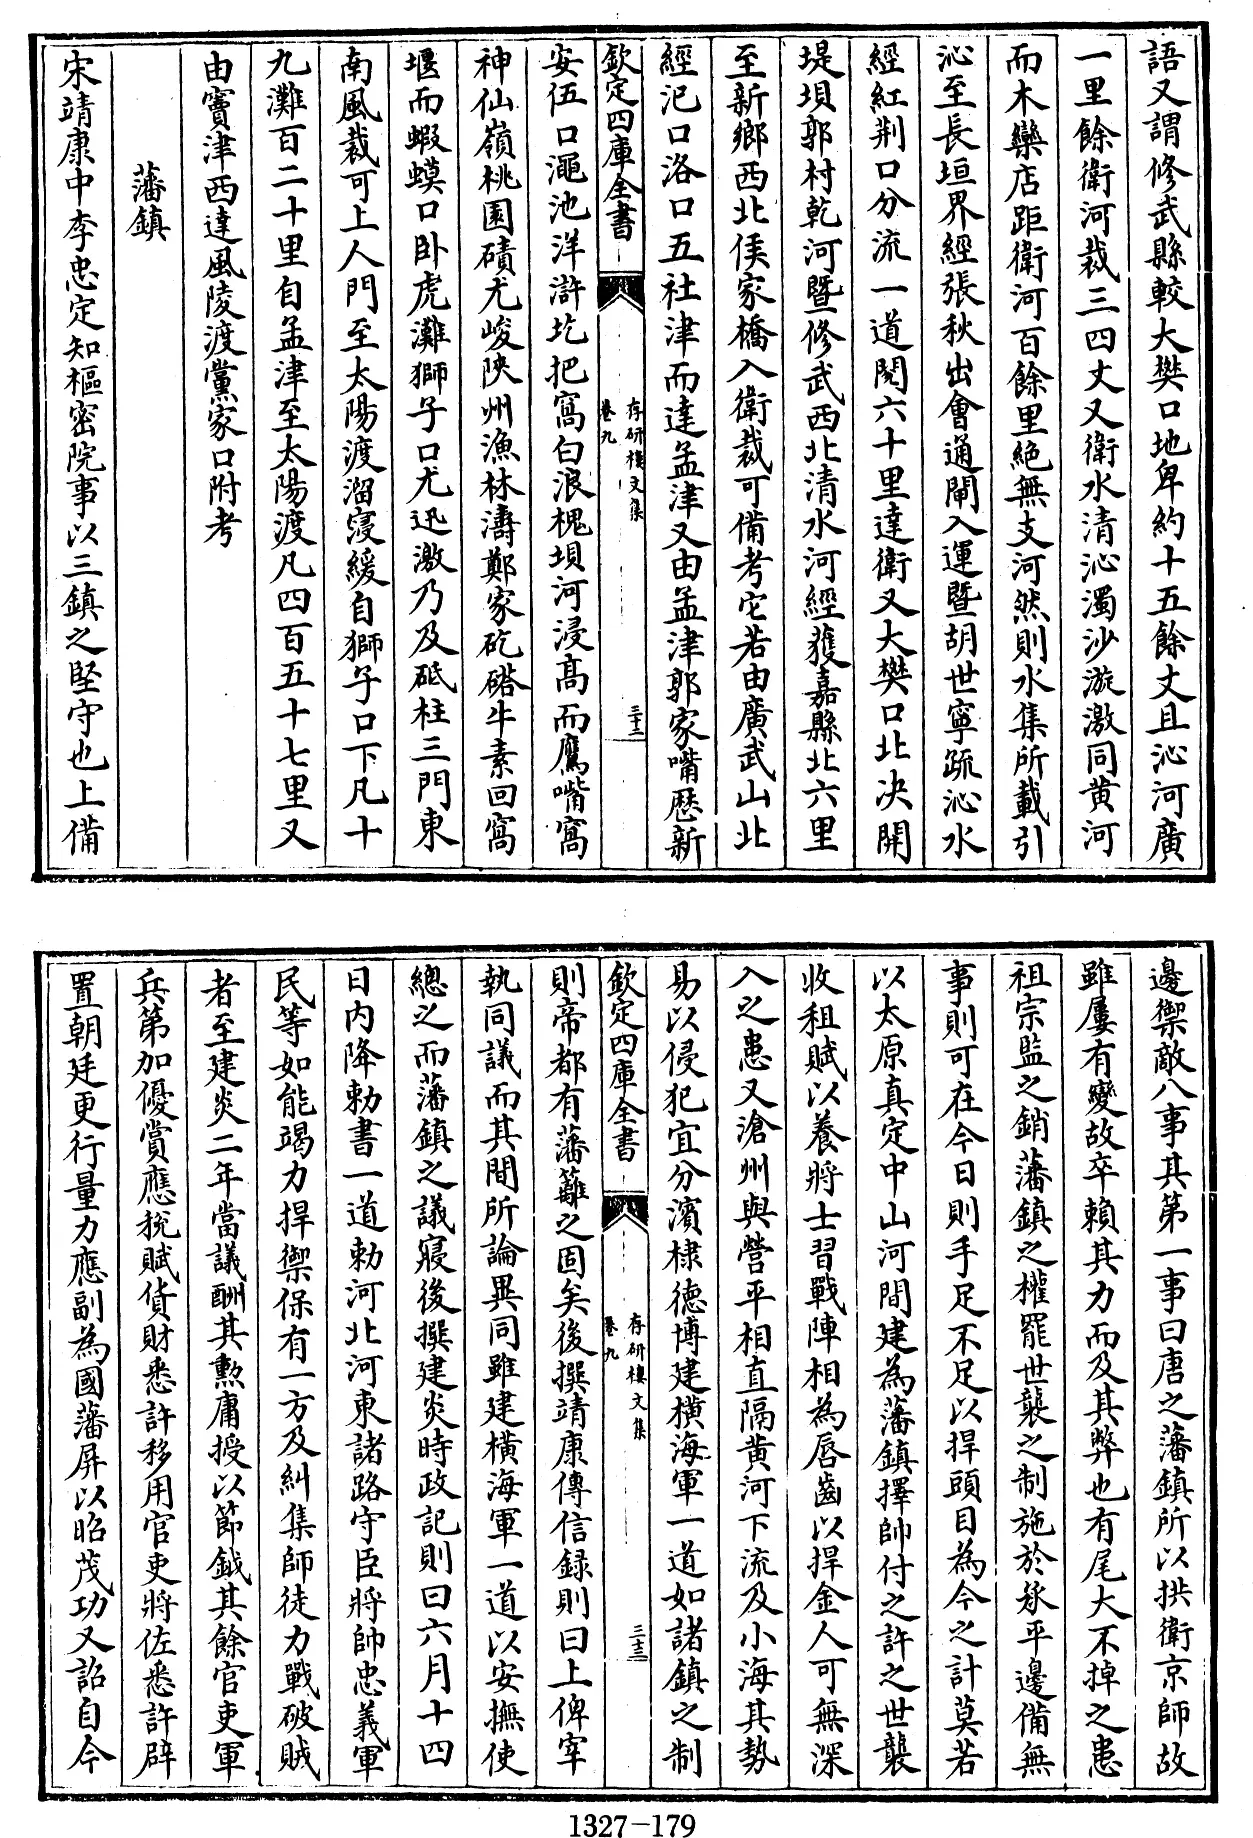 語又謂修武縣較大樊口地卑約十五餘丈且沁河廣
一里餘衛河裁三四丈又衛水清沁濁沙漩激同黄河
而木欒店距衛河百餘里絶無支河然則水集所載引
沁至長垣界經張秋出會通閘入運暨胡世寧疏沁水
經紅荆口分流一道閱六十里達衛又大樊口北决開
堤垻郭村乾河暨修武西北清水河經獲嘉縣北六里
至新鄉西北侯家橋入衛裁可備考它若由廣武山北
經汜口洛口五社津而達孟津又由孟津郭家嘴歷新
欽定四庫全書
存研樓文集
卷九
三十二
安伍口澠池洋滸圪把窩白浪槐垻河浸高而鷹嘴窩
神仙嶺桃園磧尤峻陜州漁林濤鄭家矻硌牛素回窩
堰而蝦蟆口卧虎灘獅子口尤迅激乃及砥柱三門東
南風裁可上人門至太陽渡溜寖緩自獅子口下凡十
九灘百二十里自孟津至太陽渡凡四百五十七里又
由竇津西達風陵渡黨家口附考
藩鎮
宋靖康中李忠定知樞密院事以三鎮之堅守也上備
邊禦敵八事其第一事曰唐之藩鎮所以拱衛京師故
雖屢有變故卒賴其力而及其弊也有尾大不掉之患
祖宗監之銷藩鎮之權罷世襲之制施於承平邊備無
事則可在今日則手足不足以捍頭目為今之計莫若
以太原真定中山河間建為藩鎮擇帥付之許之世襲
收租賦以養將士習戰陣相為唇齒以捍金人可無深
入之患又滄州與營平相直隔黄河下流及小海其勢
易以侵犯宜分濱棣德博建横海軍一道如諸鎮之制
欽定四庫全書
存研樓文集
卷九
三十三
則帝都有藩籬之固矣後撰靖康傳信録則曰上俾宰
執同議而其間所論異同雖建横海軍一道以安撫使
總之而藩鎮之議寢後撰建炎時政記則曰六月十四
日内降勅書一道勅河北河東諸路守臣將帥忠義軍
民等如能竭力捍禦保有一方及糾集師徒力戰破賊
者至建炎二年當議酬其勲庸授以節鉞其餘官吏軍
兵第加優賞應稅賦貨財悉許移用官吏將佐悉許辟
置朝廷更行量力應副為國藩屏以昭茂功又詔自今
1327-179